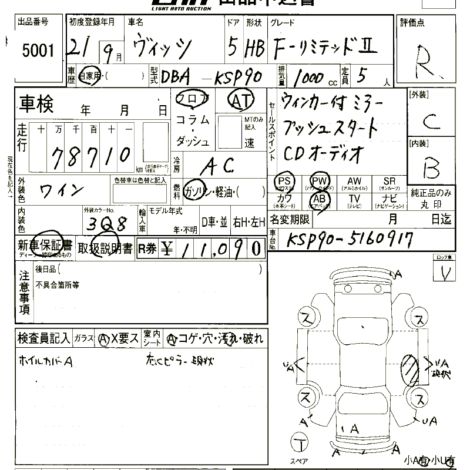 出品番号 5001
初度登録年月 21年 9月
車名 ヴィッツ
ドア 形状 5 HB
グレード F-リミテッドⅡ
評価点 R
車歴 自家用・( )
型式 DBA - KSP90
排気量 1000 cc
定員 5 人
車検 年 月 日
フロア コラム・ダッシュ
AT
MTのみ記入 速
セールスポイント
ウィンカー付ミラー
プッシュスタート
CDオーディオ
[外装] C
[内装] B
走行 十万 万 千 百 十
78710 km
冷房 AC
燃料 ガソリン・軽油・( )
PS PW AW SR
カワ AB TV ナビ
純正品のみ丸印
外装色 ワイン
色替車は色替と記入
外装カラーNo. 3Q8
輸入車 モデル年式 年・不明
D車・並 右H・左H
名変期限 月 日迄
新車保証書 取扱説明書
R券 ¥11,090
車台No. KSP90-5160917
注意事項
後日品( )
不具合箇所等
検査員記入 ガラス A X要ス
室内シート A コゲ・穴・汚れ・破れ
ホイルカバーA
左Cピラー現状
A
ス ス
ス ス
A A
T
スペア